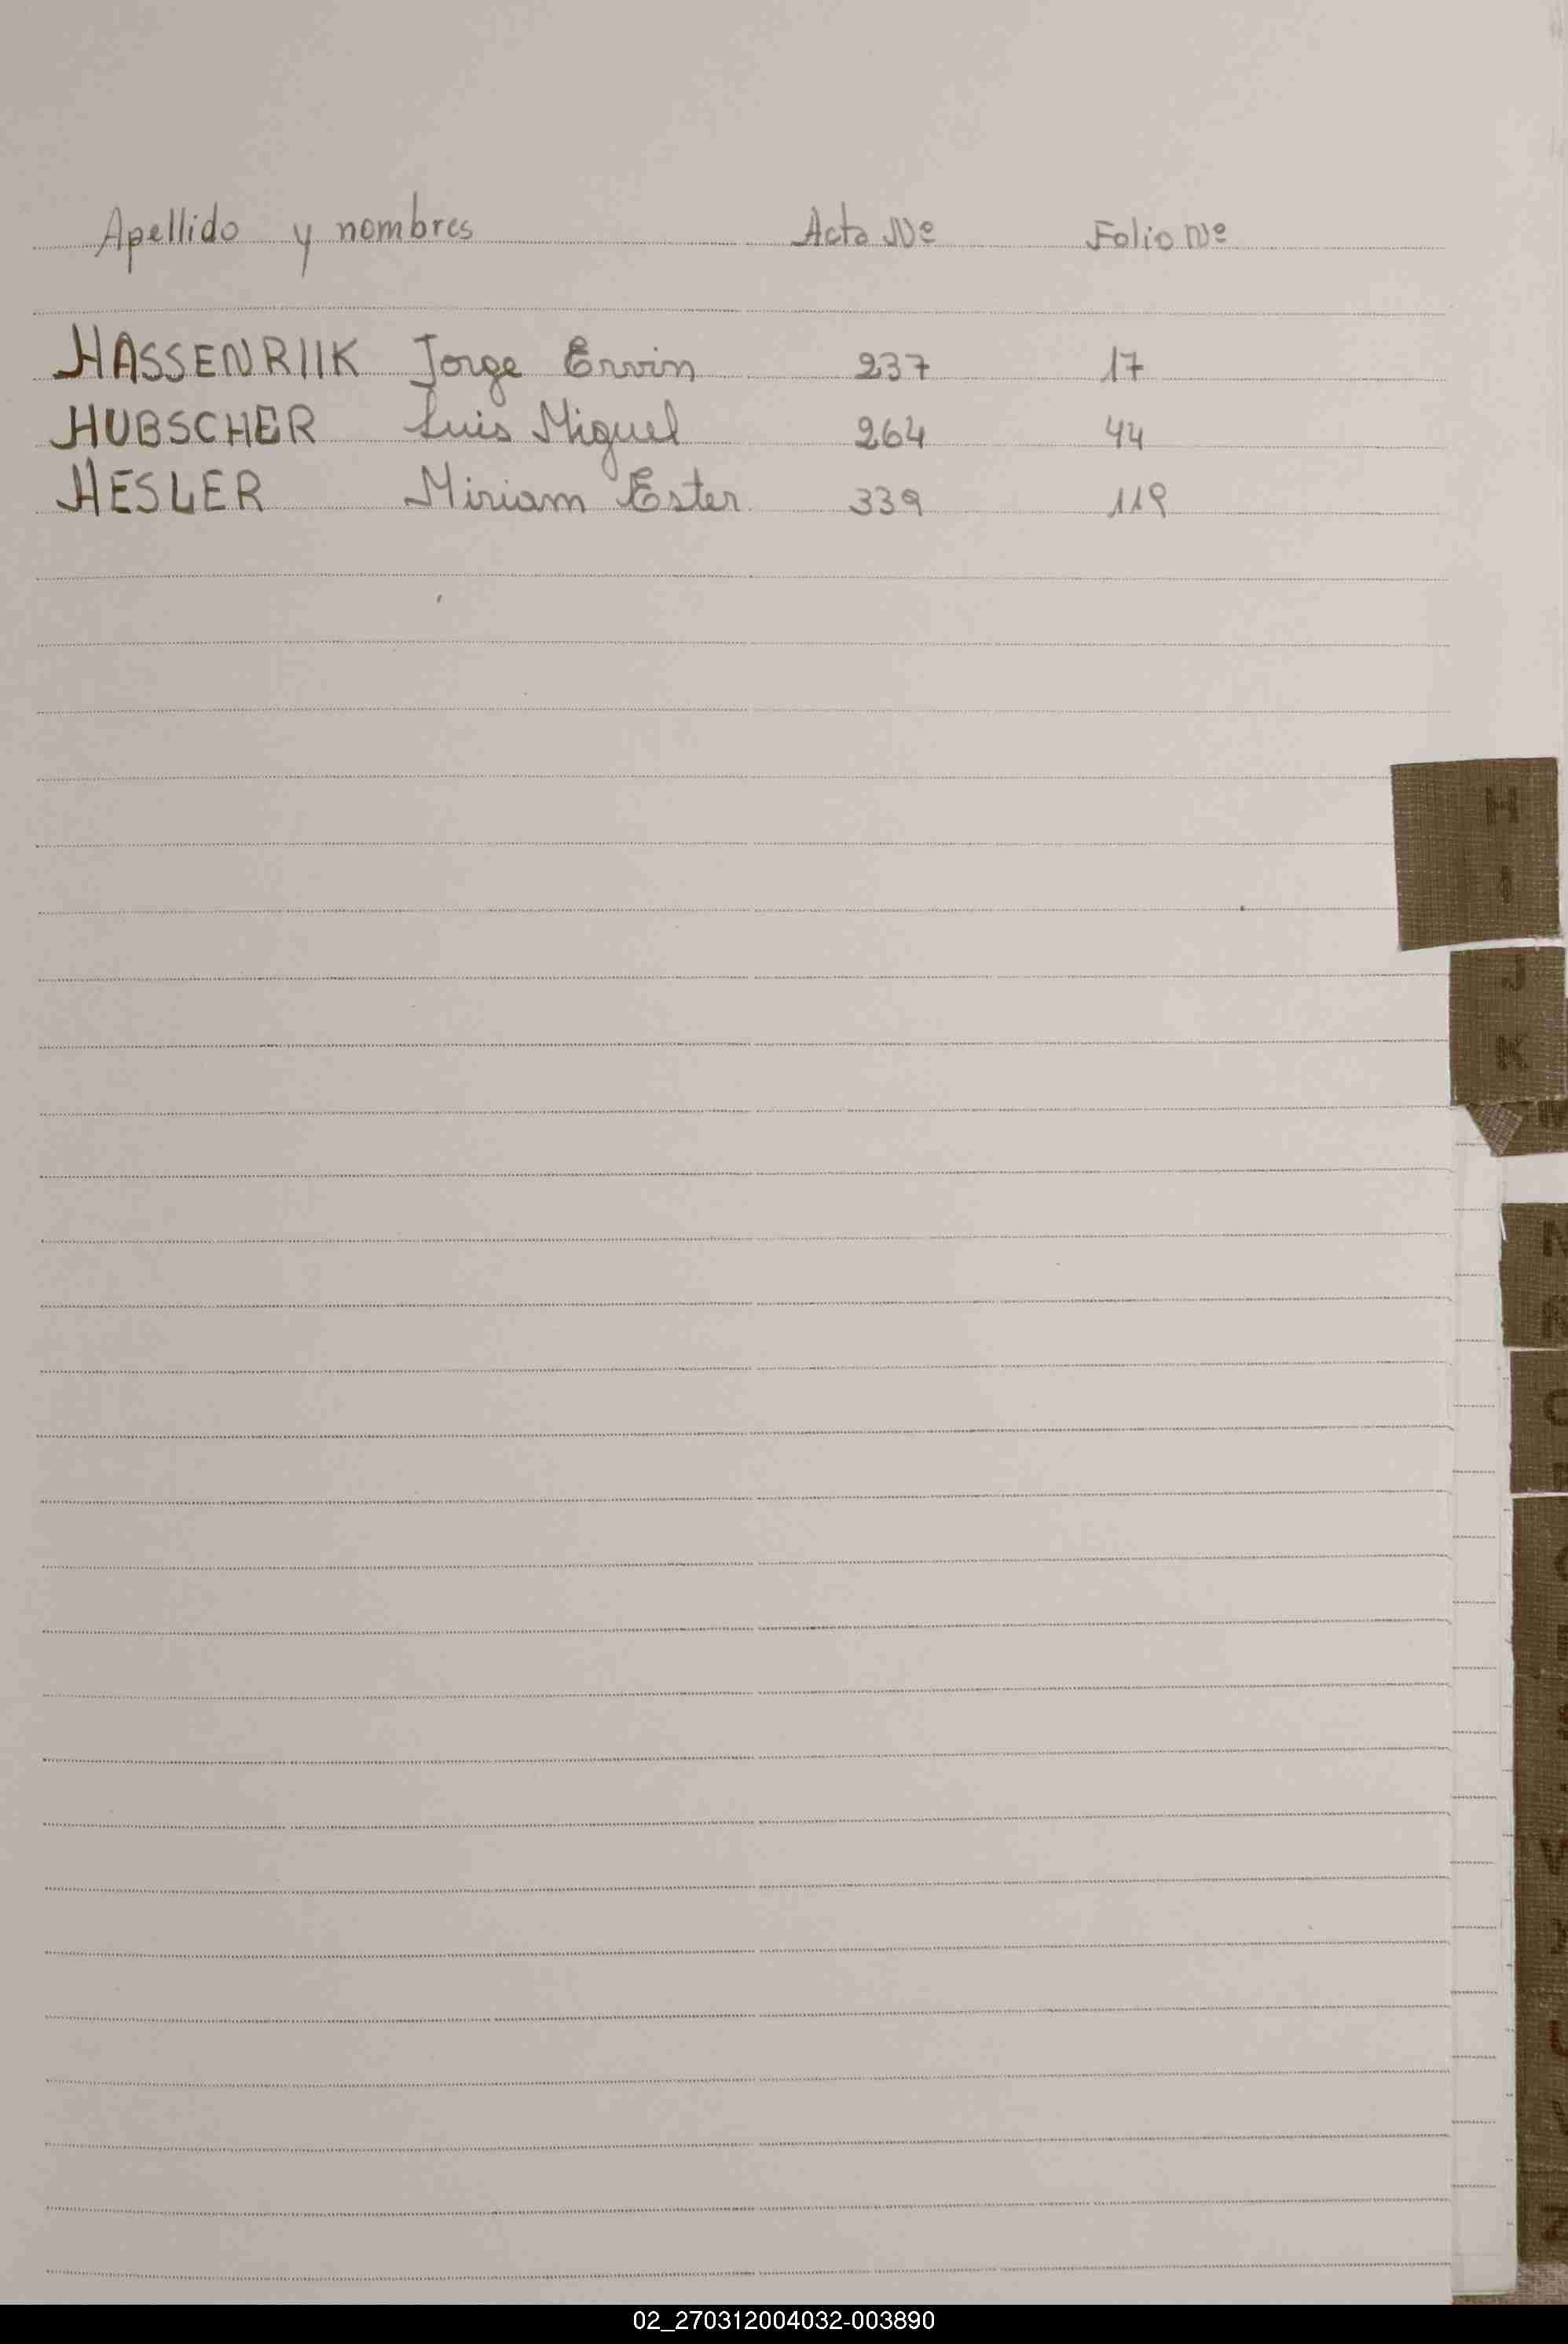 Apellido y nombres Acta Nº Folio Nº
HASSENRIIK Jorge Erwin 237 17
HUBSCHER Luis Miguel 264 44
HESLER Miriam Ester 339 119
H
I
J
K
N
Z
02_270312004032-003890